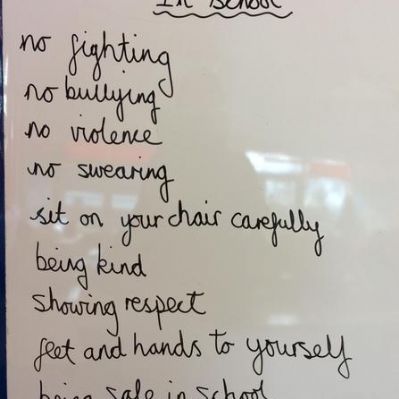 In School
no fighting
no bullying
no violence
no swearing
sit on your chair carefully
being kind
showing respect
feet and hands to yourself
being safe in school